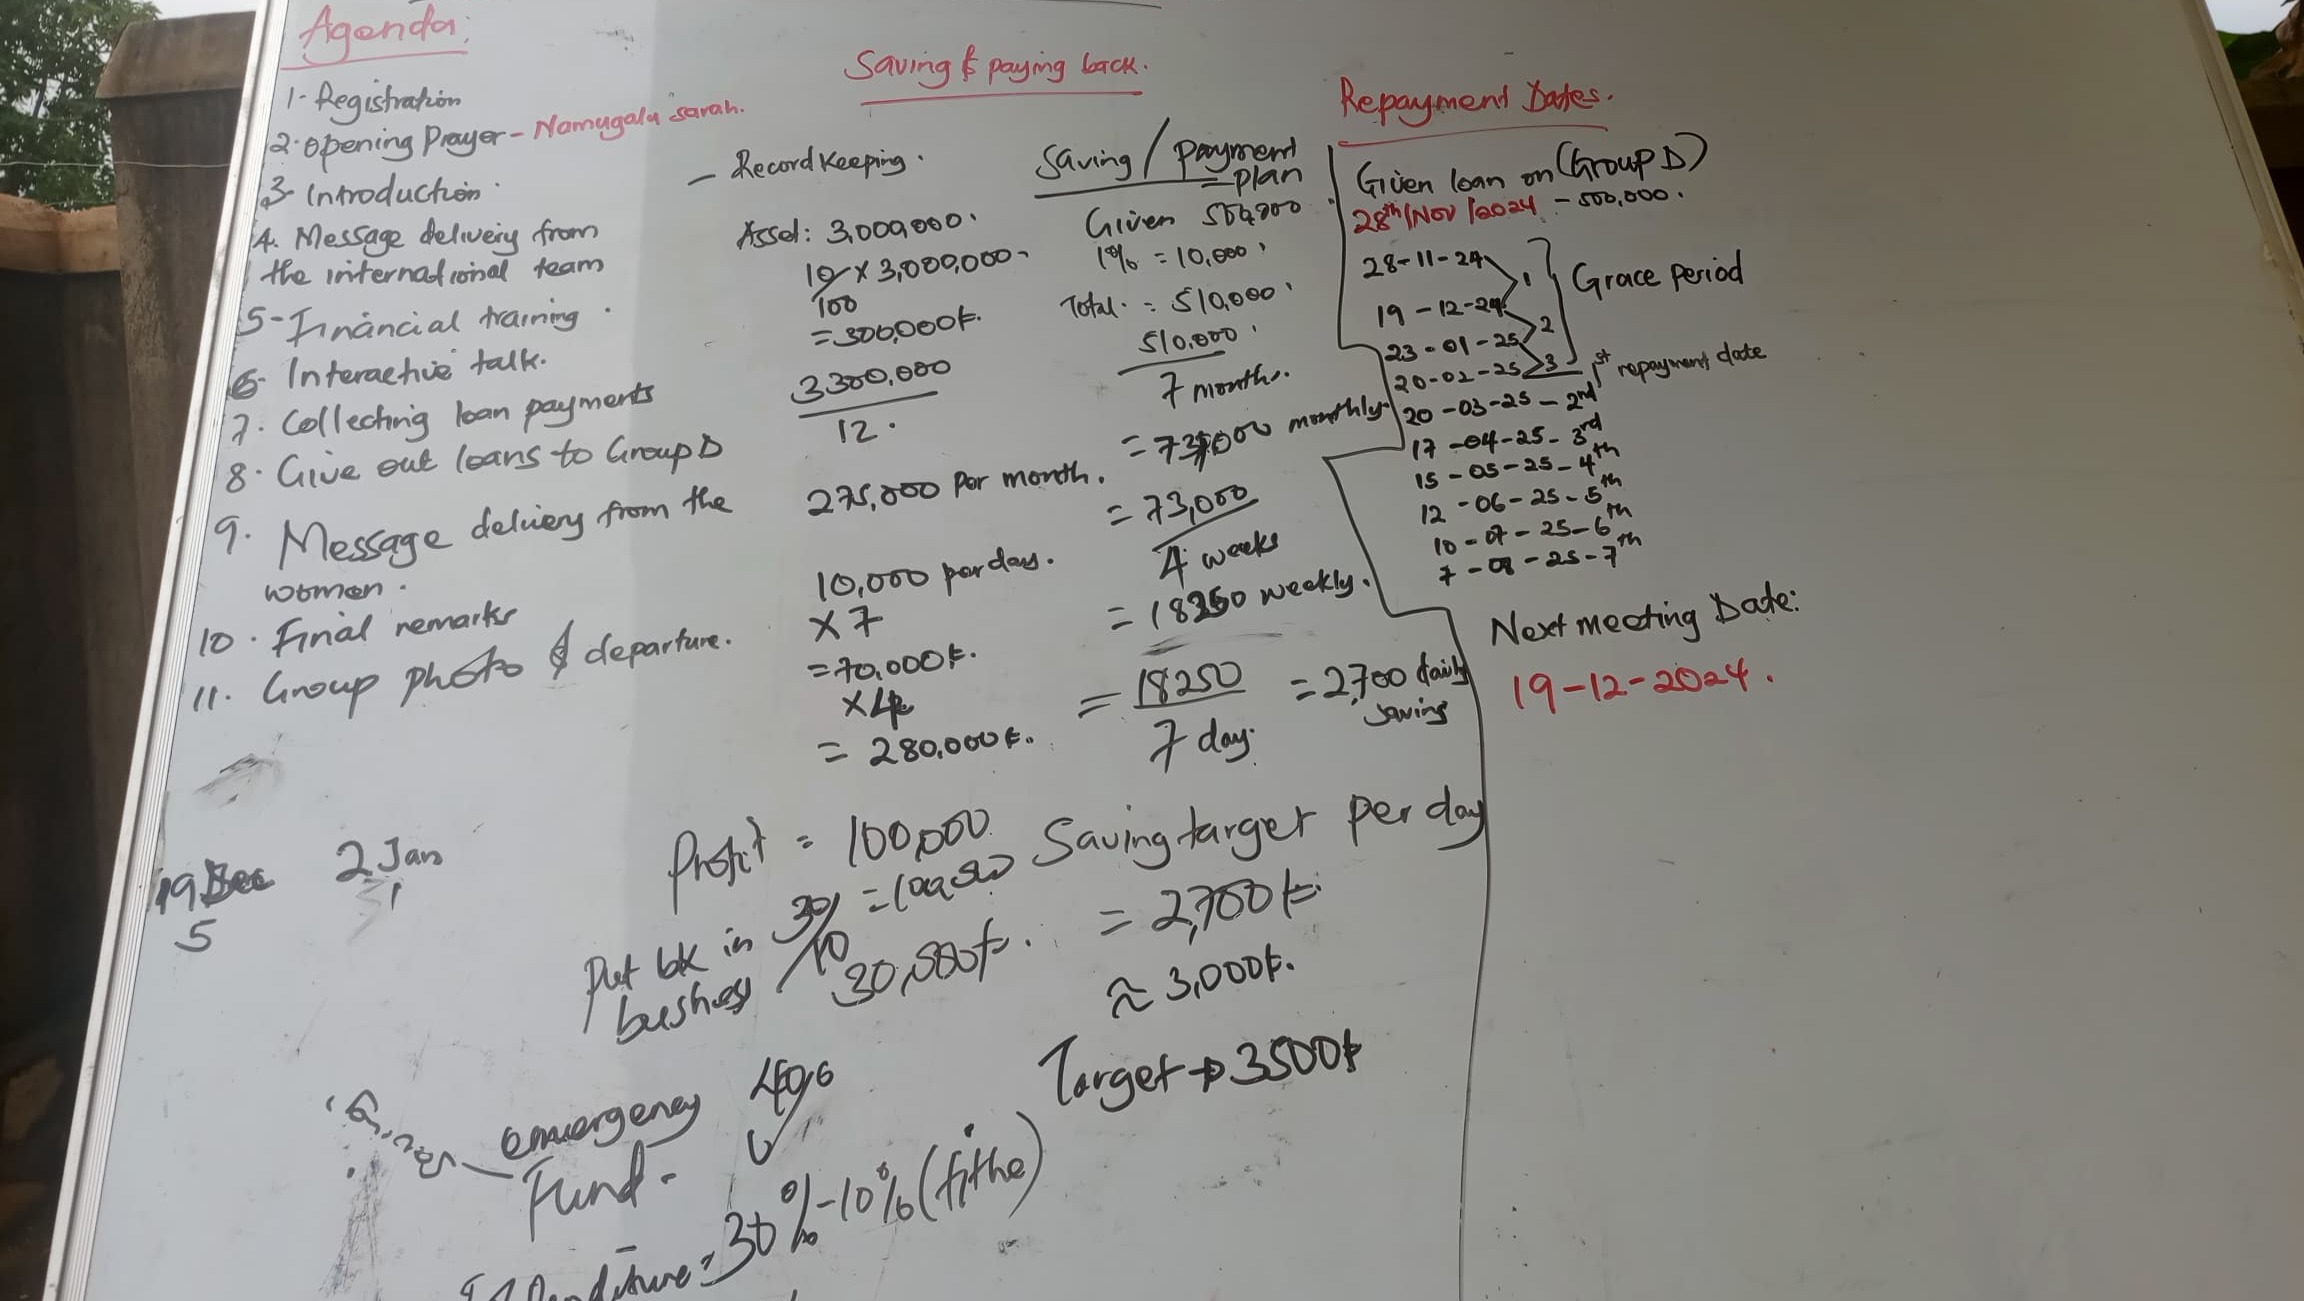 Agenda:
1- Registration
2. Opening Prayer - Namugalu Sarah.
3- Introduction.
4. Message delivery from
the international team
5- Financial training.
6- Interactive talk.
7. Collecting loan payments
8. Give out loans to Group D
9. Message delivery from the
women.
10. Final remarks
11. Group photo & departure.
19 Dec
5
2 Jan
1
Saving & paying back.
- Record Keeping.
Asset: 3,000,000.
10/100 x 3,000,000
= 300,000/=.
3,300,000
12.
275,000 per month.
10,000 per day.
x 7
= 70,000/=.
x 4
= 280,000/=.
Saving / Payment
= plan
Given 500,000
1% = 10,000
Total. = 510,000
510,000
7 months.
= 73,000 monthly
= 73,000
4 weeks
= 18250 weekly.
= 18250
7 day.
= 2,700 daily
saving
Profit = 100,000
Put bk in
business
30,000/=.
emergency
Fund -
= 30% - 10% (tithe)
Saving target per day
= 2,700/=.
≈ 3,000/=.
Target → 3500/=
Repayment Dates.
Given loan on (Group D)
28th/Nov/2024 - 500,000.
28-11-24
1
19-12-24
2
23-01-25
3
20-02-25
Grace period
1st repayment date
20-03-25 - 2nd
17-04-25 - 3rd
15-05-25 - 4th
12-06-25 - 5th
10-07-25 - 6th
7-08-25 - 7th
Next meeting Date:
19-12-2024.